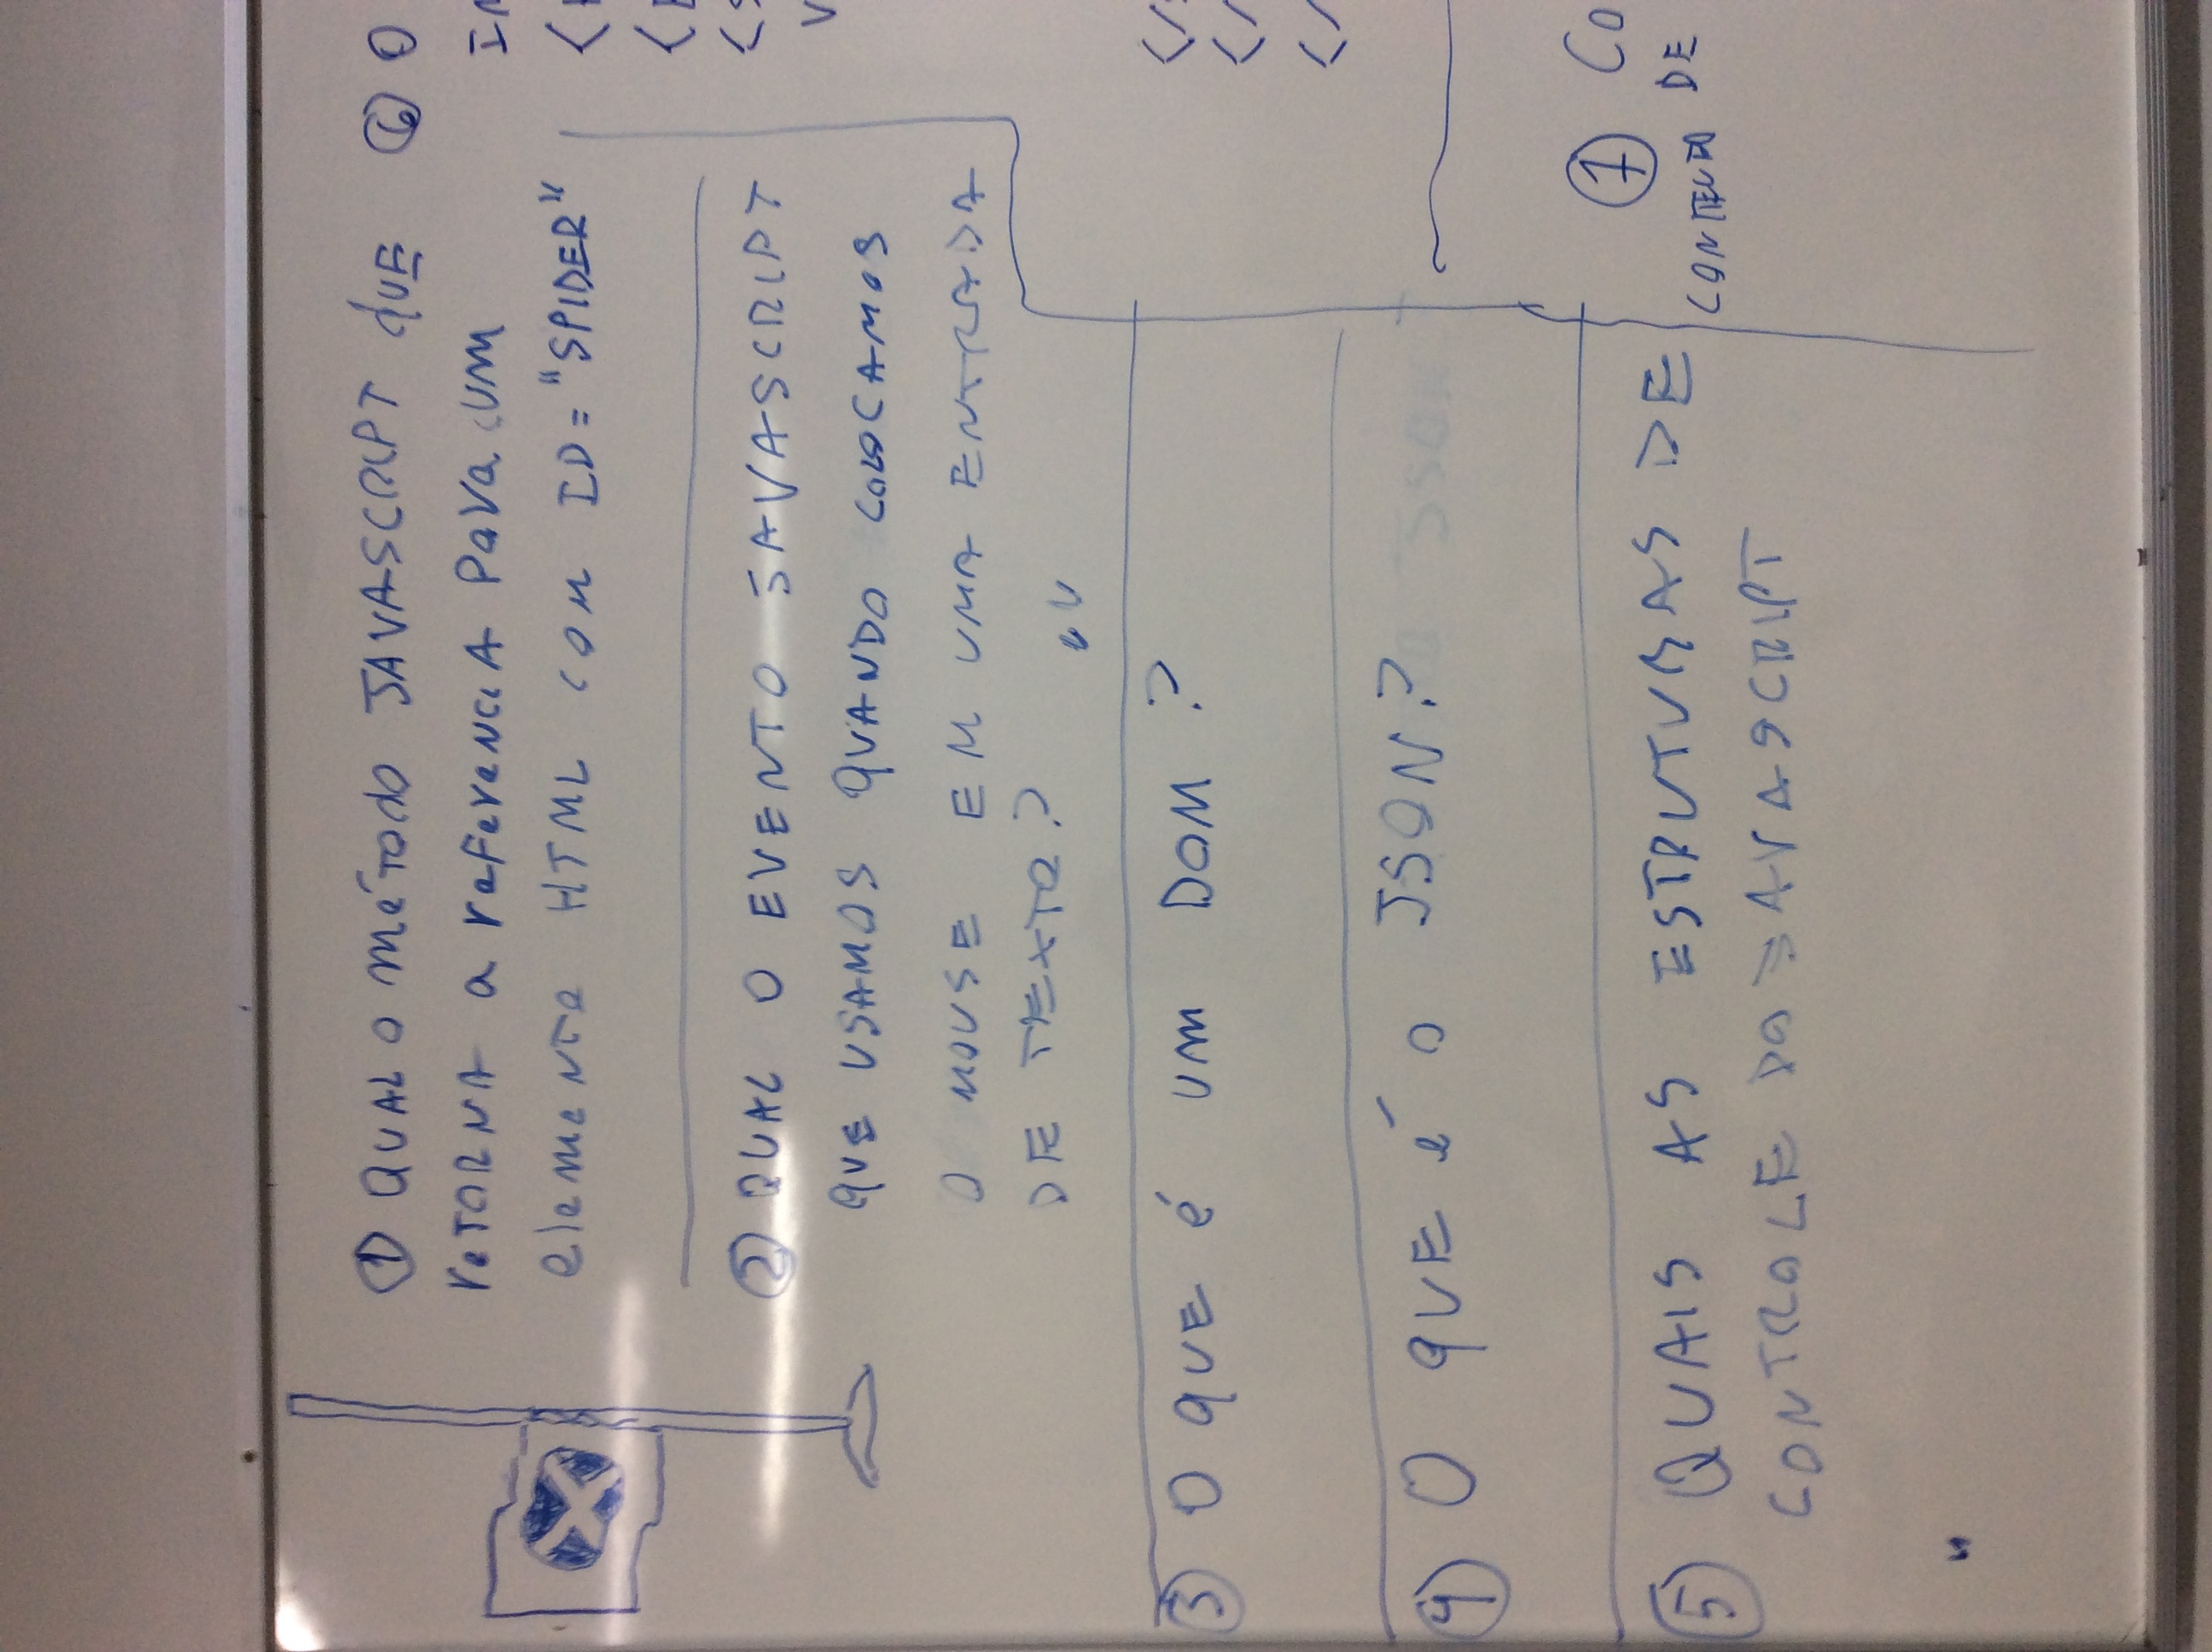 ① QUAL O MÉTODO JAVASCRIPT QUE
RETORNA A REFERENCIA PARA UM
ELEMENTO HTML COM ID="SPIDER"
② QUAL O EVENTO JAVASCRIPT
QUE USAMOS QUANDO COLOCAMOS
O MOUSE EM UMA ENTRADA
DE TEXTO?
③ O QUE É UM DOM?
④ O QUE É O JSON?
⑤ QUAIS AS ESTRUTURAS DE
CONTROLE DO JAVASCRIPT
⑥ O
<
<
<S
V
</
</
</
⑦ CO
CONTEUDO DE